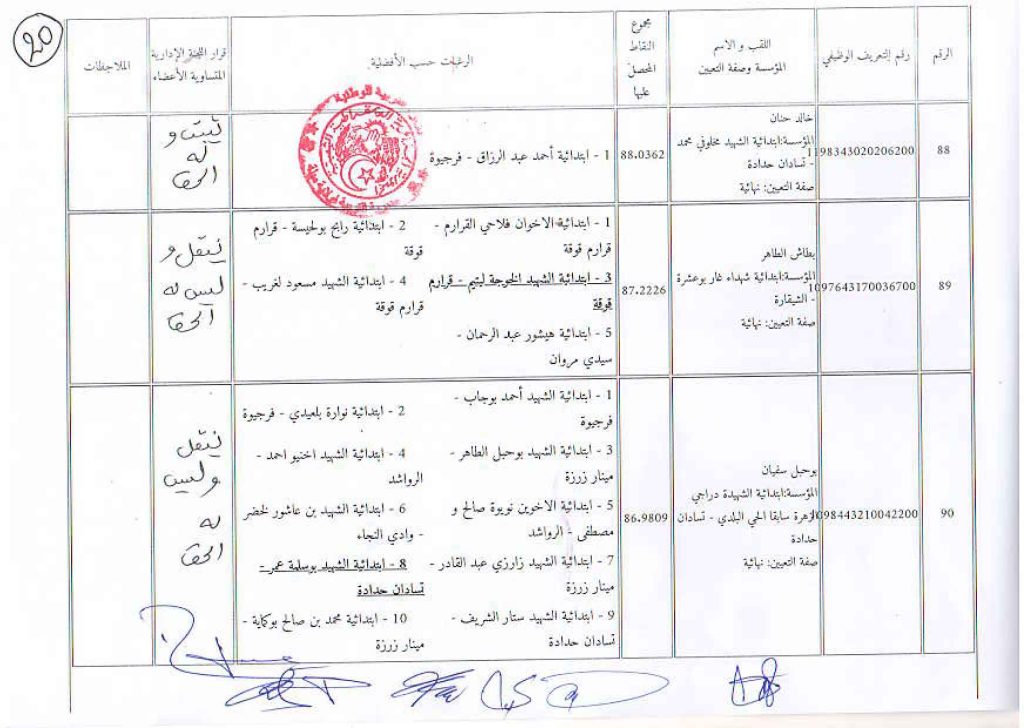 20
الرقم
رقم التعريف الوظيفي
اللقب و الاسم
المؤسسة وصفة التعيين
مجموع
النقاط
المحصل
عليها
الرغبات حسب الأفضلية
قرار اللجنة الإدارية
المتساوية الأعضاء
الملاحظات
88
1198343020206200
خالد حنان
المؤسسة:ابتدائية الشهيد مخلوفي محمد
- تسادان حدادة
صفة التعيين: نهائية
88.0362
1 - ابتدائية أحمد عبد الرزاق - فرجيوة
يثبت و
له
الحق
89
1097643170036700
بطاش الطاهر
المؤسسة:ابتدائية شهداء غار بوعشرة
- الشيقارة
صفة التعيين: نهائية
87.2226
1 - ابتدائية الاخوان فلاحي القرارم -
قرارم قوقة
2 - ابتدائية رابح بولحيسة - قرارم
قوقة
3 - ابتدائية الشهيد الخوجة ليتيم - قرارم
قوقة
4 - ابتدائية الشهيد مسعود لغريب -
قرارم قوقة
5 - ابتدائية هيشور عبد الرحمان -
سيدي مروان
ينتقل و
ليس له
الحق
90
1098443210042200
بوحبل سفيان
المؤسسة:ابتدائية الشهيدة دراجي
الزهرة سابقا الحي البلدي - تسادان
حدادة
صفة التعيين: نهائية
86.9809
1 - ابتدائية الشهيد أحمد بوجاب -
فرجيوة
2 - ابتدائية نوارة بلعيدي - فرجيوة
3 - ابتدائية الشهيد بوحبل الطاهر -
مينار زرزة
4 - ابتدائية الشهيد اخنيو احمد -
الرواشد
5 - ابتدائية الاخوين نويوة صالح و
مصطفى - الرواشد
6 - ابتدائية الشهيد بن عاشور لخضر
- وادي النجاء
7 - ابتدائية الشهيد زارزي عبد القادر -
مينار زرزة
8 - ابتدائية الشهيد بوسلمة عمر -
تسادان حدادة
9 - ابتدائية الشهيد ستار الشريف -
تسادان حدادة
10 - ابتدائية محمد بن صالح بوكماية -
مينار زرزة
ينتقل
وليس
له
الحق